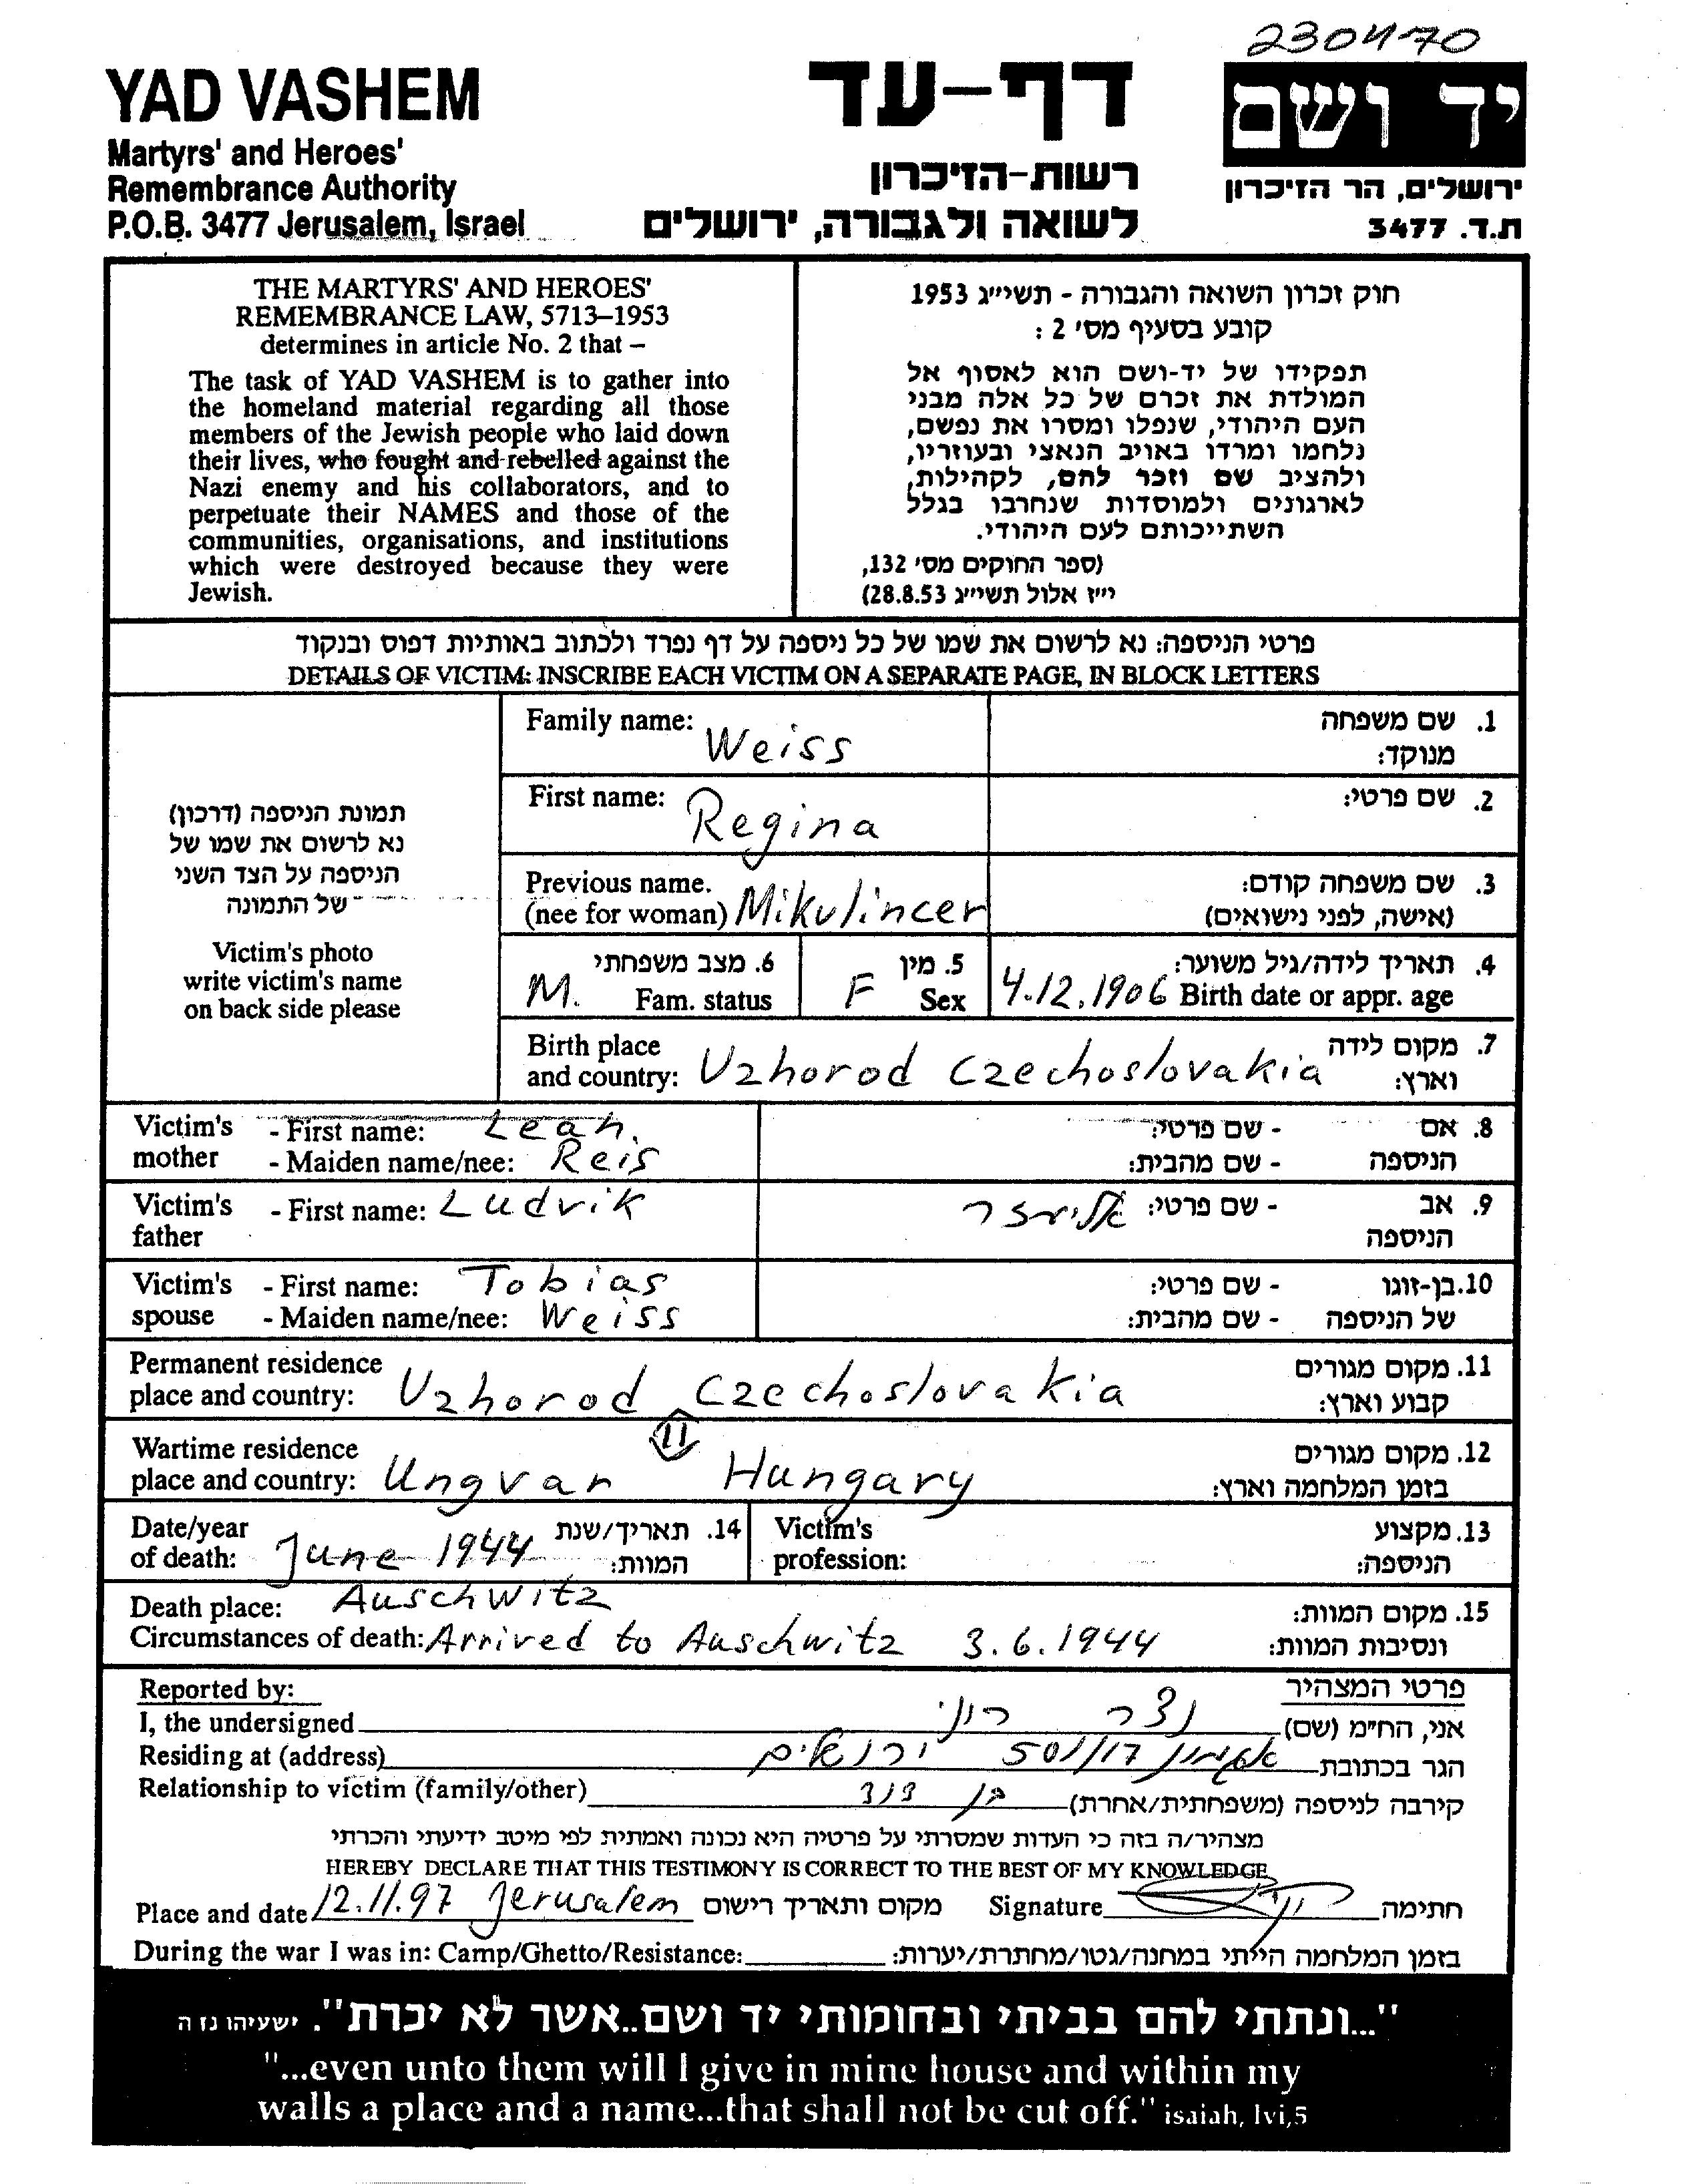 2304170
YAD VASHEM
Martyrs' and Heroes'
Remembrance Authority
P.O.B. 3477 Jerusalem, Israel
דף-עד
רשות-הזיכרון
לשואה ולגבורה, ירושלים
יד ושם
ירושלים, הר הזיכרון
ת.ד. 3477
THE MARTYRS' AND HEROES'
REMEMBRANCE LAW, 5713–1953
determines in article No. 2 that –
The task of YAD VASHEM is to gather into
the homeland material regarding all those
members of the Jewish people who laid down
their lives, who fought and rebelled against the
Nazi enemy and his collaborators, and to
perpetuate their NAMES and those of the
communities, organisations, and institutions
which were destroyed because they were
Jewish.
חוק זכרון השואה והגבורה - תשי״ג 1953
קובע בסעיף מס׳ 2 :
תפקידו של יד-ושם הוא לאסוף אל
המולדת את זכרם של כל אלה מבני
העם היהודי, שנפלו ומסרו את נפשם,
נלחמו ומרדו באויב הנאצי ובעוזריו,
ולהציב שם וזכר להם, לקהילות,
לארגונים ולמוסדות שנחרבו בגלל
השתייכותם לעם היהודי.
(ספר החוקים מס׳ 132,
י״ז אלול תשי״ג 28.8.53)
פרטי הניספה: נא לרשום את שמו של כל ניספה על דף נפרד ולכתוב באותיות דפוס ובנקוד
DETAILS OF VICTIM: INSCRIBE EACH VICTIM ON A SEPARATE PAGE, IN BLOCK LETTERS
תמונת הניספה (דרכון)
נא לרשום את שמו של
הניספה על הצד השני
של התמונה
Victim's photo
write victim's name
on back side please
Family name: Weiss
1. שם משפחה
מנוקד:
First name: Regina
2. שם פרטי:
Previous name.
(nee for woman) Mikulincer
3. שם משפחה קודם:
(אישה, לפני נישואים)
6. מצב משפחתי
M. Fam. status
5. מין
F Sex
4. תאריך לידה/גיל משוער:
4.12.1906 Birth date or appr. age
Birth place
and country: Uzhorod Czechoslovakia
7. מקום לידה
וארץ:
Victim's - First name: Leah.
mother - Maiden name/nee: Reis
8. אם - שם פרטי:
הניספה - שם מהבית:
Victim's - First name: Ludvik
father
9. אב - שם פרטי: אליעזר
הניספה
Victim's - First name: Tobias
spouse - Maiden name/nee: Weiss
10. בן-זוגו - שם פרטי:
של הניספה - שם מהבית:
Permanent residence
place and country: Uzhorod Czechoslovakia
11. מקום מגורים
קבוע וארץ:
Wartime residence
place and country: Ungvar Hungary
12. מקום מגורים
בזמן המלחמה וארץ:
Date/year
of death: June 1944
14. תאריך/שנת
המוות:
Victim's
profession:
13. מקצוע
הניספה:
Death place: Auschwitz
Circumstances of death: Arrived to Auschwitz 3.6.1944
15. מקום המוות:
ונסיבות המוות:
Reported by:
פרטי המצהיר
I, the undersigned
אני, הח״מ (שם) נצר רוני
Residing at (address)
הגר בכתובת 501/17 ירושלים
Relationship to victim (family/other)
קירבה לניספה (משפחתית/אחרת) בן דוד
מצהיר/ה בזה כי העדות שמסרתי על פרטיה היא נכונה ואמתית לפי מיטב ידיעתי והכרתי
HEREBY DECLARE THAT THIS TESTIMONY IS CORRECT TO THE BEST OF MY KNOWLEDGE
Place and date 12.11.97 Jerusalem מקום ותאריך רישום Signature חתימה
During the war I was in: Camp/Ghetto/Resistance: בזמן המלחמה הייתי במחנה/גטו/מחתרת/יערות:
"...ונתתי להם בביתי ובחומותי יד ושם..אשר לא יכרת". ישעיהו נז ה
"...even unto them will I give in mine house and within my
walls a place and a name...that shall not be cut off." isaiah, lvi,5